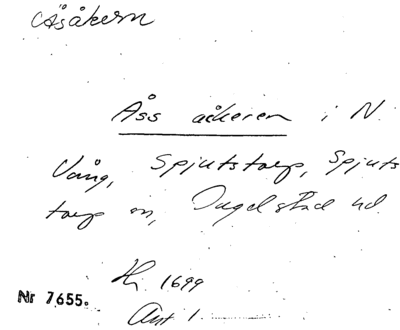 Åsåkern
Åss åkeren i N.
Vång, Spjutstorp, Spjuts
torp sn, Ingelstad hd.
Hi 1699
Nr 7655.
Akt 1.